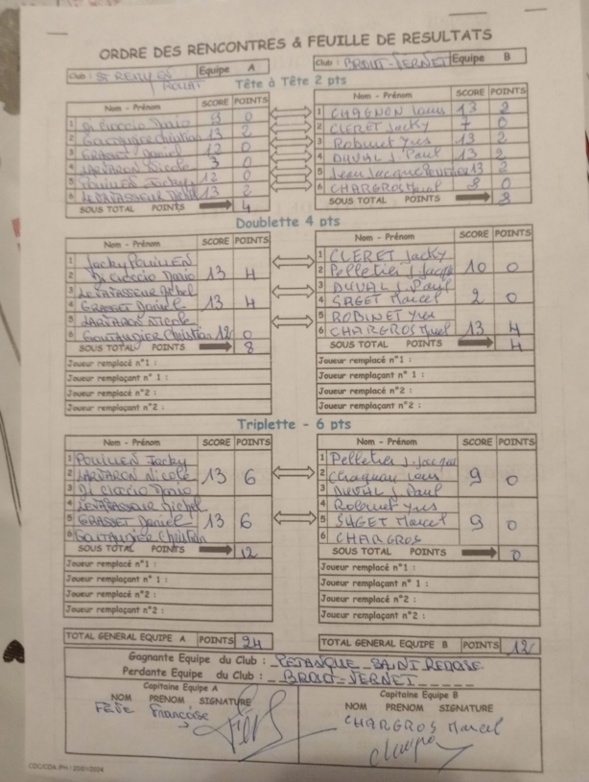 ORDRE DES RENCONTRES & FEUILLE DE RESULTATS
Club : ST REMY EN Equipe A
ROLLAT
Club : BROUT-VERNET Equipe B
Tête à Tête 2 pts
Nom - Prénom SCORE POINTS
1 Di Cioccio Dario 9 0
2 Christian 13 2
3 GRASSET Daniel 12 0
4 Nicole 3 0
5 Jacky 12 0
6 LEVAVASSEUR 13 2
SOUS TOTAL POINTS 4
Nom - Prénom SCORE POINTS
1 CHAGNON Louis 13 2
2 CLERET Jacky 7 0
3 Robinet Yves 13 2
4 DUVAL J. Paul 13 2
5 Jean Jacques 13 2
6 CHARGROS Marcel 8 0
SOUS TOTAL POINTS 8
Doublette 4 pts
Nom - Prénom SCORE POINTS
1 Jacky
2 Di Cioccio Dario 13 4
3 LEVAVASSEUR Michel
4 GRASSET Daniel 13 4
5 Nicole
6 Christian 12 0
SOUS TOTAL POINTS 8
Joueur remplacé n°1 :
Joueur remplaçant n° 1 :
Joueur remplacé n°2 :
Joueur remplaçant n°2 :
Nom - Prénom SCORE POINTS
1 CLERET Jacky
2 Pelletier J. Jacq 10 0
3 DUVAL J. Paul
4 SAGET Marcel 2 0
5 ROBINET Yves
6 CHARGROS 13 4
SOUS TOTAL POINTS 4
Joueur remplacé n°1 :
Joueur remplaçant n° 1 :
Joueur remplacé n°2 :
Joueur remplaçant n°2 :
Triplette - 6 pts
Nom - Prénom SCORE POINTS
1 Jacky
2 Nicole 13 6
3 Di Cioccio Dario
4 LEVAVASSEUR Michel
5 GRASSET Daniel 13 6
6 Christian
SOUS TOTAL POINTS 12
Joueur remplacé n°1 :
Joueur remplaçant n° 1 :
Joueur remplacé n°2 :
Joueur remplaçant n°2 :
Nom - Prénom SCORE POINTS
1 Pelletier J. Jacques
2 Louis 9 0
3 DUVAL J. Paul
4 Robinet Yves
5 SAGET Marcel 9 0
6 CHARGROS
SOUS TOTAL POINTS 0
Joueur remplacé n°1 :
Joueur remplaçant n° 1 :
Joueur remplacé n°2 :
Joueur remplaçant n°2 :
TOTAL GENERAL EQUIPE A POINTS 24
TOTAL GENERAL EQUIPE B POINTS 12
Gagnante Equipe du Club : PETANQUE SAINT
Perdante Equipe du Club : BROUT-VERNET
Capitaine Equipe A
NOM PRENOM SIGNATURE
Françoise
Capitaine Equipe B
NOM PRENOM SIGNATURE
CHARGROS Marcel